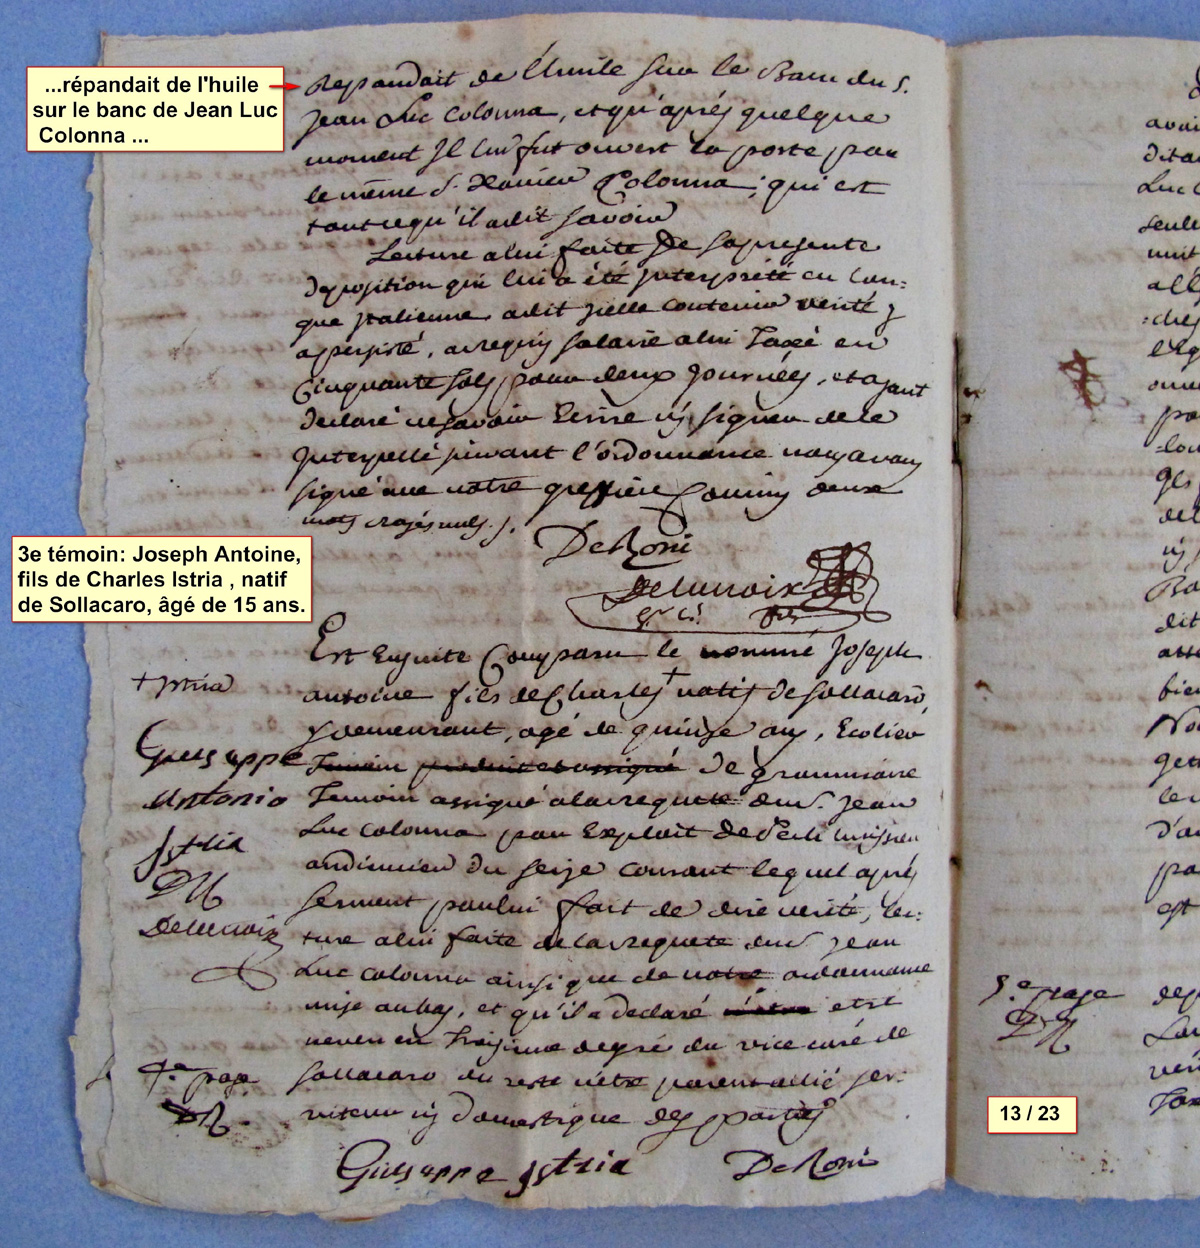 ...répandait de l'huile
sur le banc de Jean Luc
Colonna ...
Repandait de l'huile sur le Banc du S.
Jean Luc Colonna, et qu'aprés quelque
moment Il lui fut ouvert la porte par
le même S. Xavier Colonna; qui est
tout ce qu'il a dit savoir
Lecture a lui faite de sa presente
deposition qui lui a été Interprété en Lan:
gue Italienne, a dit icelle contenir verité y
a persisté, a requis salaire a lui Taxé en
Cinquante sols pour deux Journées, et ayant
declaré ne savoir Ecrire ny signer de ce
Interpellé suivant l'ordonnance nous avons
signé avec notre greffier Commis deux
mots rayés nuls ;.
De Roni
Delacroix
3e témoin: Joseph Antoine,
fils de Charles Istria , natif
de Sollacaro, âgé de 15 ans.
Est Ensuite Comparu le nommé Joseph
antoine fils de Charles + natif de Sollacaro,
+ Istria
y demeurant, agé de quinze ans, Ecolier
Temoin produit et assigné de grammaire
Giuseppe
Antonio
Istria
DR
Delacroix
Temoin assigné a la requete du S. Jean
Luc Colonna par Exploit de
du seize courant lequel aprés
serment par lui fait de dire verité, lec:
ture a lui faite de la requete du S. Jean
Luc Colonna ainsi que de notre ordonnance
mise au bas, et qu'il a declaré n'etre etre
neveu en troisieme degré du vice curé de
Sollacaro du reste n'être parent allié ser:
viteur ny Domestique des parties
4.e page
DR
Giuseppe Istria De Roni
5.e page
DR
13 / 23